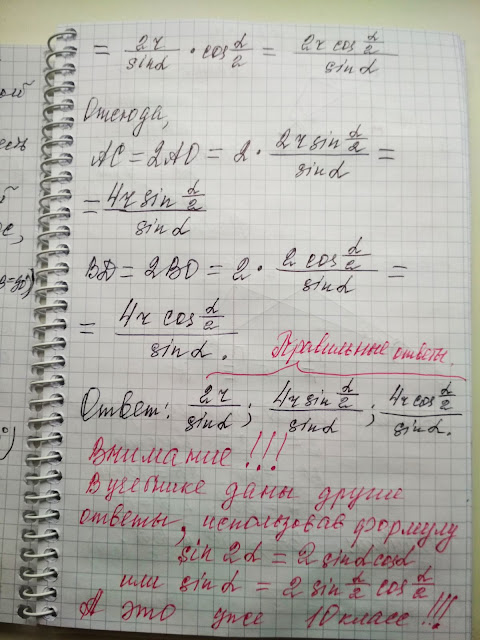 = 2r/sinα · cos α/2 = 2r cos α/2 / sinα
Отсюда,
AC = 2AO = 2 · 2r sin α/2 / sinα =
= 4r sin α/2 / sinα
BD = 2BO = 2 · 2 cos α/2 / sinα =
= 4r cos α/2 / sinα.
Правильные ответы.
Ответ: 2r/sinα; 4r sin α/2 / sinα; 4r cos α/2 / sinα.
Внимание!!!
В учебнике даны другие
ответы, использовав формулу
sin 2α = 2 sinα cosα
или sinα = 2 sin α/2 cos α/2
А это уже 10 класс!!!